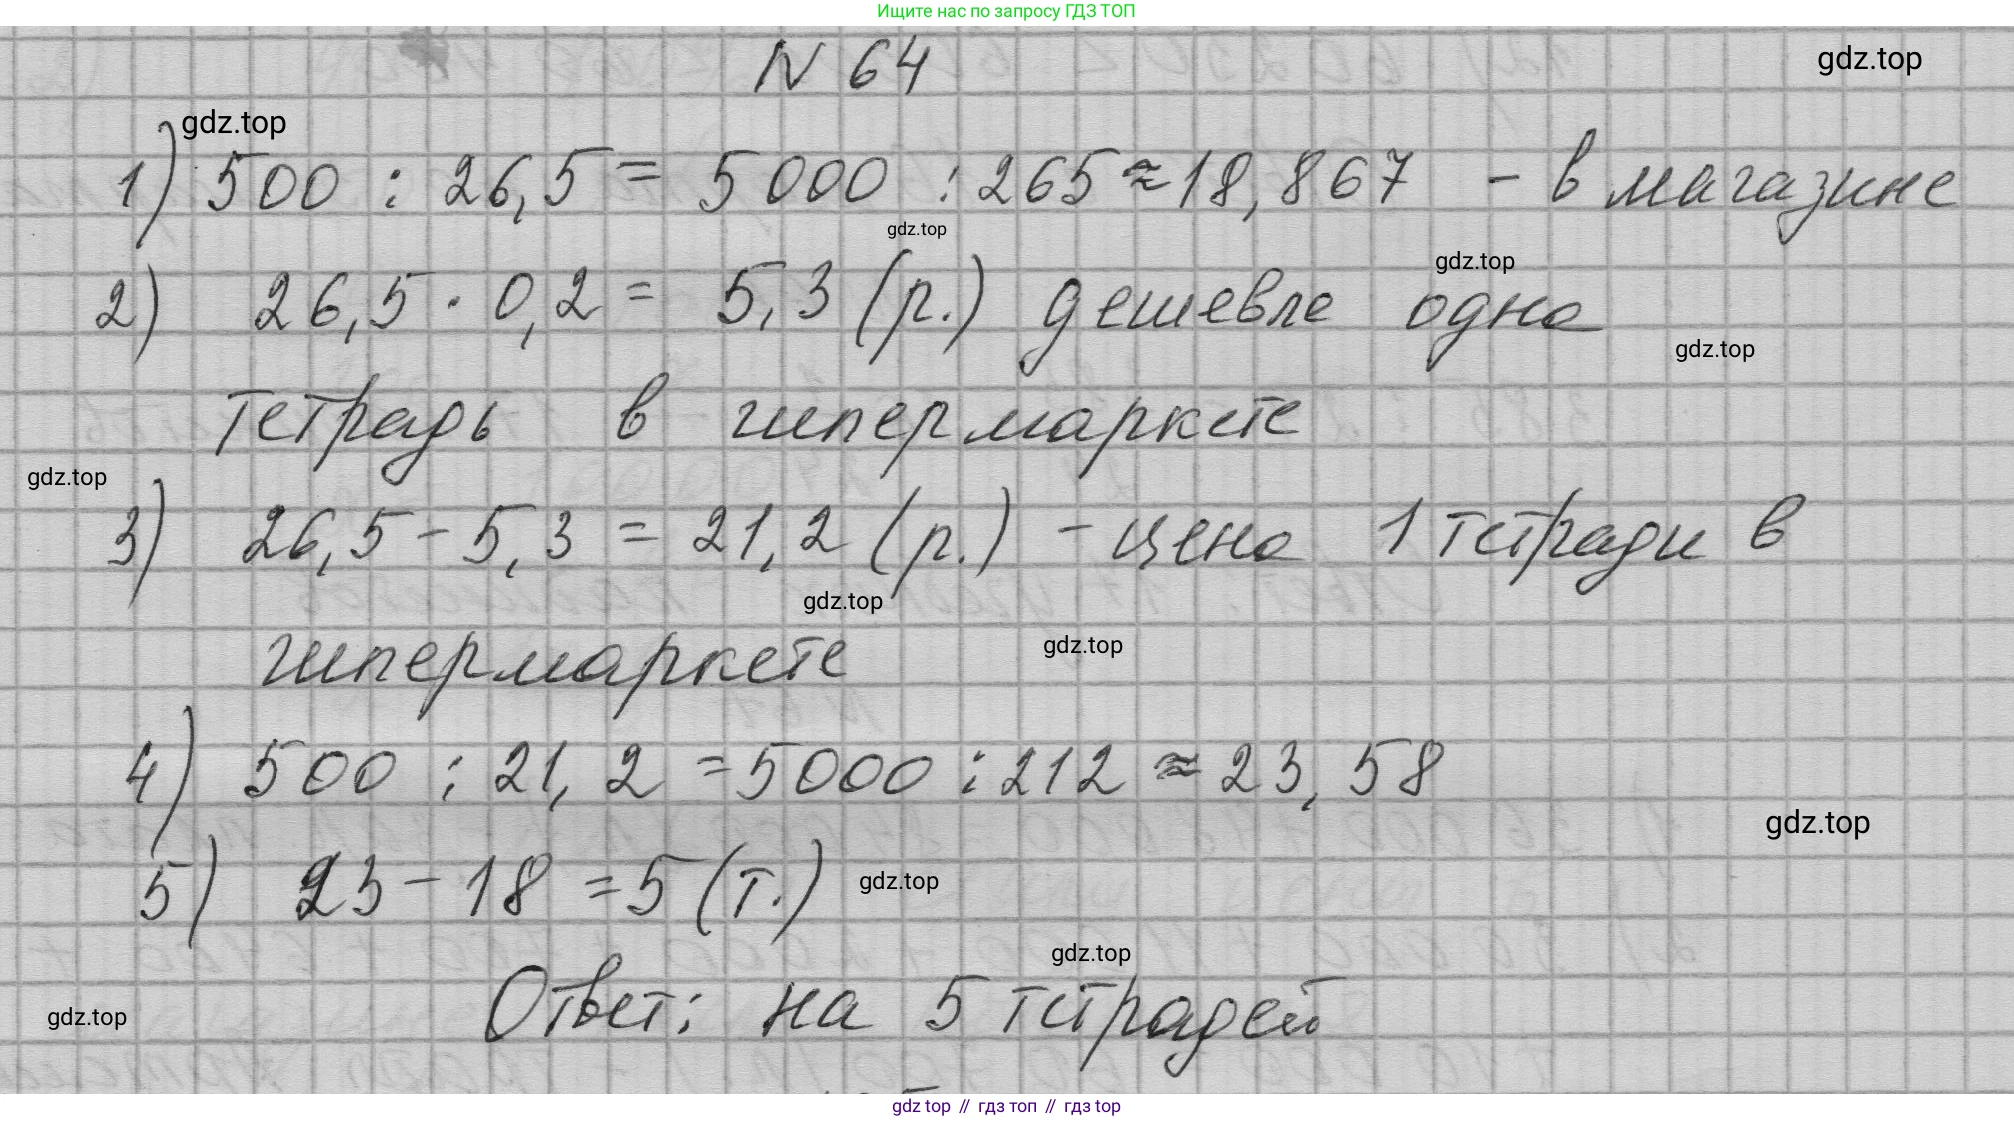 Ищите нас по запросу ГДЗ ТОП
N 64
gdz.top
gdz.top
1) 500 : 26,5 = 5000 : 265 ≈ 18,867 - в магазине
gdz.top
gdz.top
2) 26,5 · 0,2 = 5,3 (р.) дешевле одна
gdz.top
тетрадь в гипермаркете
gdz.top
3) 26,5 - 5,3 = 21,2 (р.) - цена 1 тетради в
gdz.top
гипермаркете
gdz.top
4) 500 : 21,2 = 5000 : 212 ≈ 23,58
gdz.top
5) 23 - 18 = 5 (т.)
gdz.top
gdz.top
Ответ: на 5 тетрадей
gdz.top
gdz top // гдз топ // гдз top